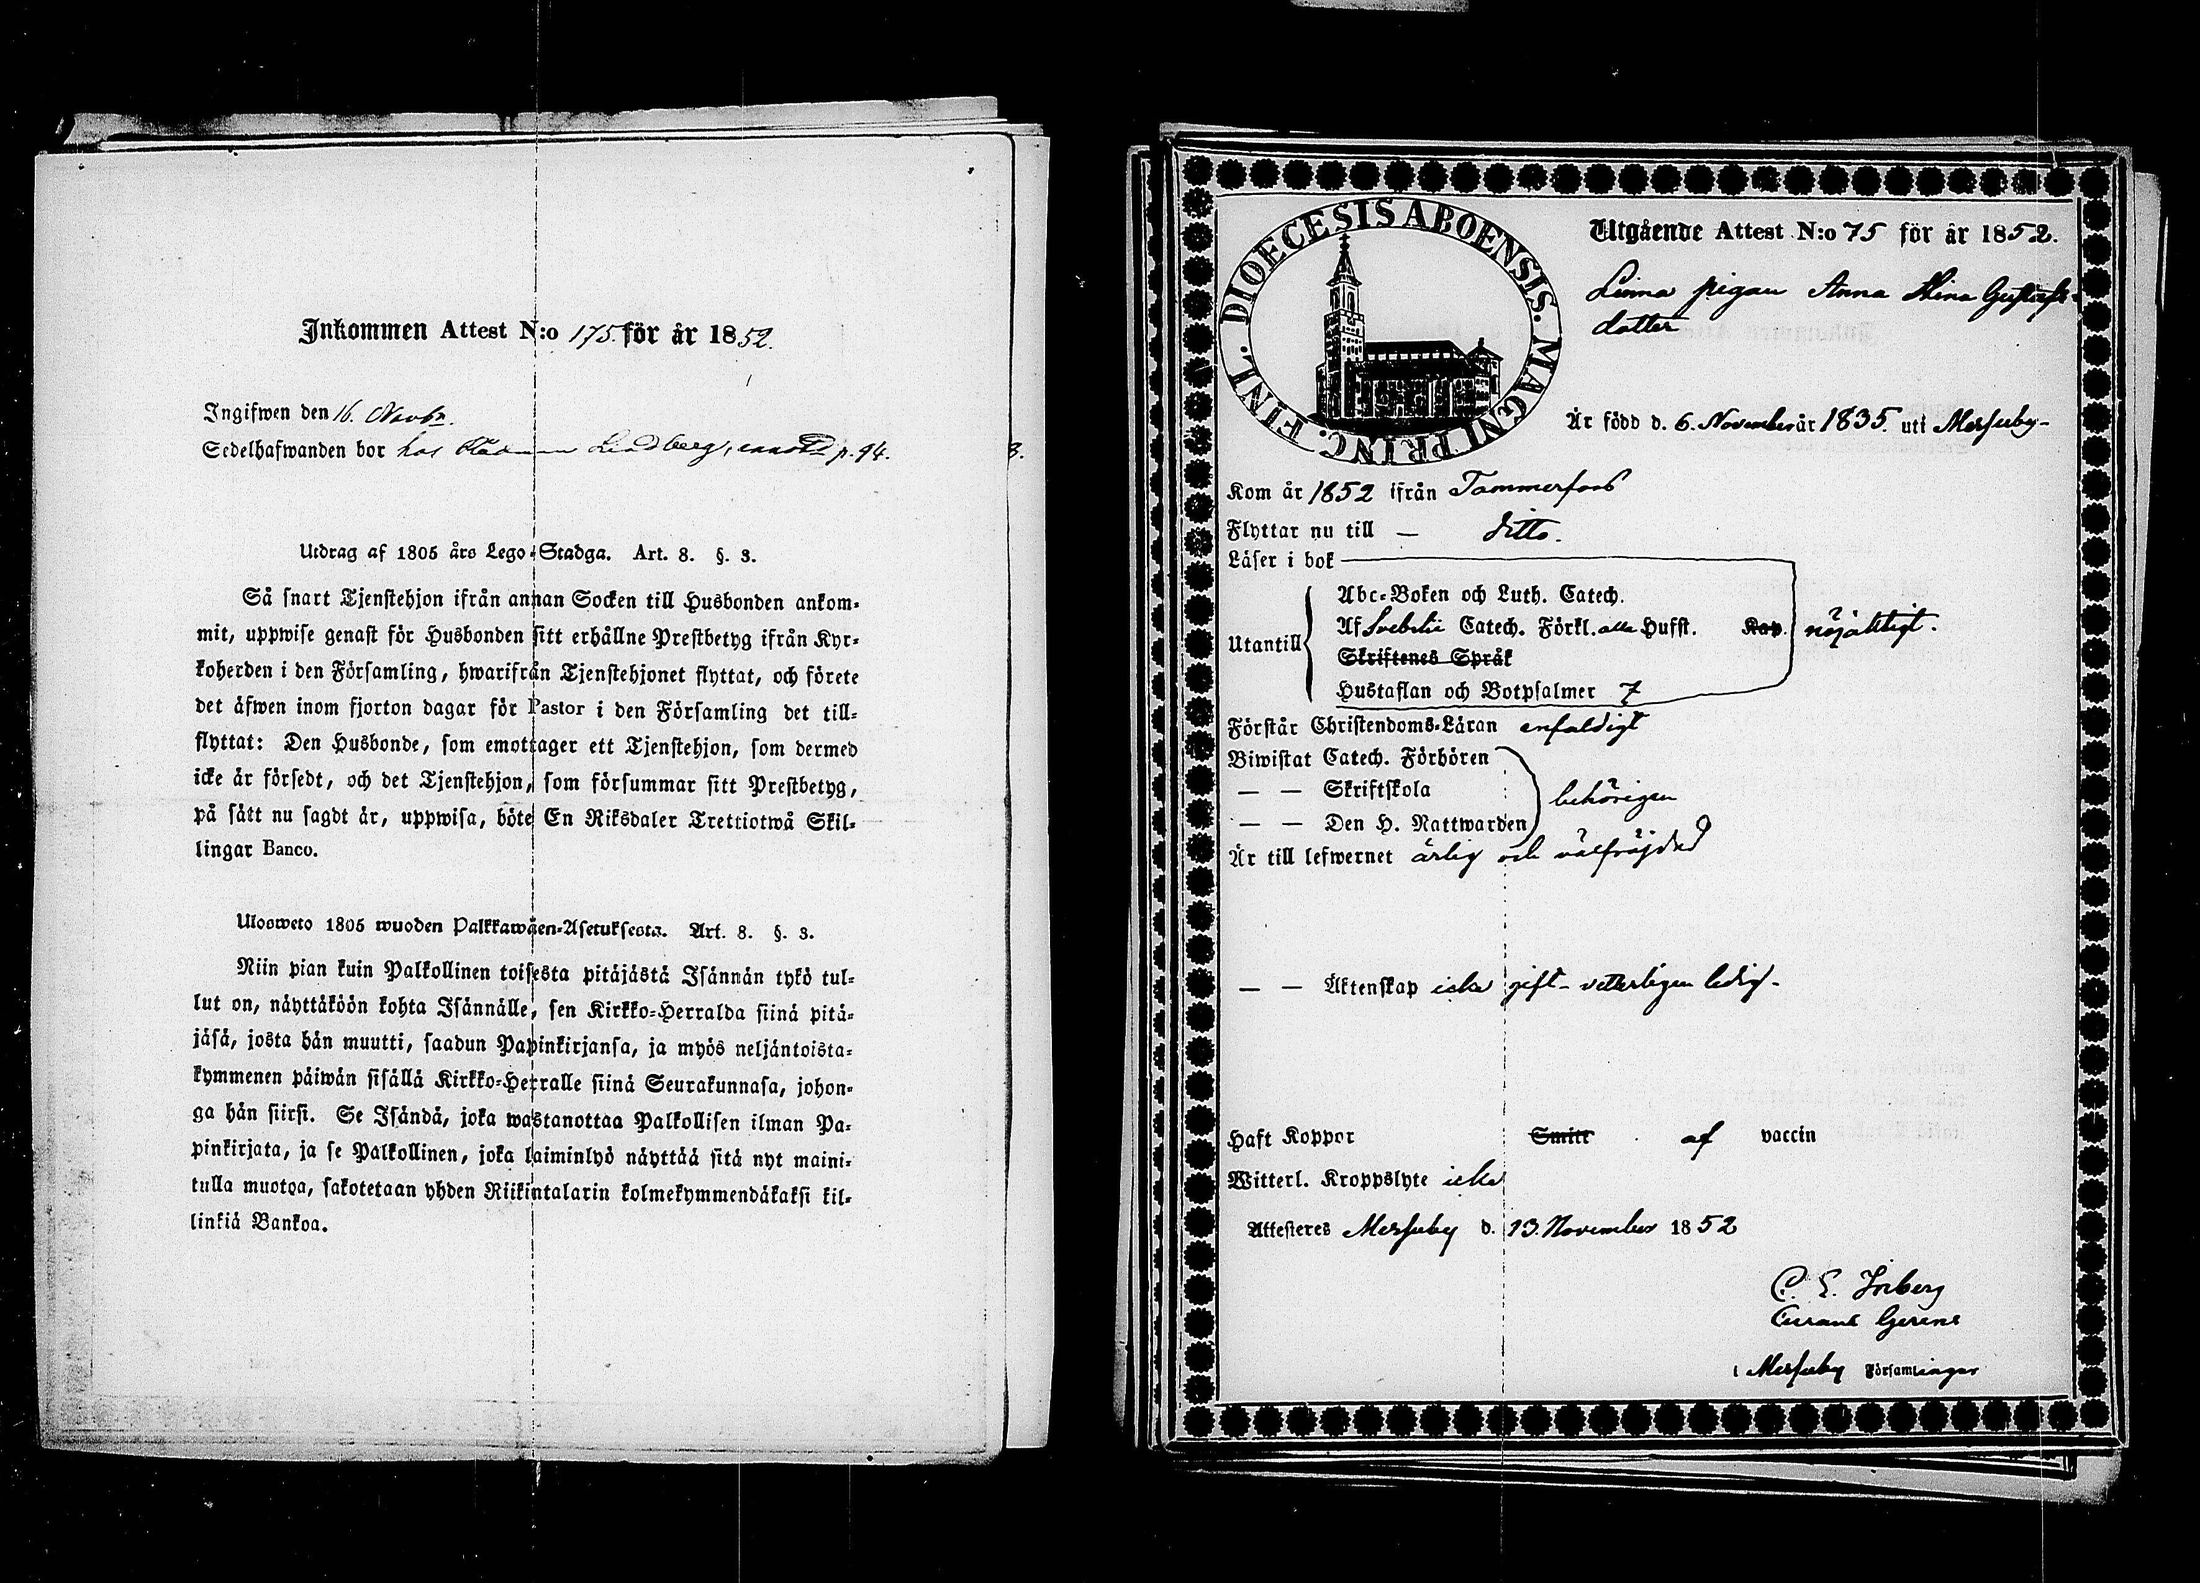 Inkommen Attest N:o 175 för år 1852.
Ingifwen den 16. Novbr.
Sedelhafwanden bor hos Lindberg, p. 94.
Utdrag af 1805 års Lego-Stadga. Art. 8. §. 3.
Så snart Tjenstehjon ifrån annan Socken till Husbonden ankom-
mit, uppwise genast för Husbonden sitt erhållne Prestbetyg ifrån Kyr-
koherden i den Församling, hwarifrån Tjenstehjonet flyttat, och förete
det äfwen inom fjorton dagar för Pastor i den Församling det till-
flyttat: Den Husbonde, som emottager ett Tjenstehjon, som dermed
icke är försedt, och det Tjenstehjon, som försummar sitt Prestbetyg,
på sätt nu sagdt är, uppwisa, böte En Riksdaler Trettiotwå Skil-
lingar Banco.
Ulosweto 1805 wuoden Palkkawäen-Asetuksesta. Art. 8. §. 3.
Niin pian kuin Palkollinen toisesta pitäjästä Isännän tykö tul-
lut on, näyttäköön kohta Isännälle, sen Kirkko-Herralda siinä pitä-
jäsä, josta hän muutti, saadun Papinkirjansa, ja myös neljäntoista-
kymmenen päiwän sisällä Kirkko-Herralle siinä Seurakunnasa, johon-
ga hän siirsi. Se Isändä, joka wastanottaa Palkollisen ilman Pa-
pinkirjata, ja se Palkollinen, joka laiminlyö näyttää sitä nyt maini-
tulla muotoa, sakotetaan yhden Riikintalarin kolmekymmendäkaksi kil-
linkiä Bankoa.
3.
DIOECESIS ABOENSIS. MAGNI PRINC. FINL.
Utgående Attest N:o 75 för år 1852.
pigan Anna Stina Gustafs-
dotter
Är född d. 6. November år 1835. uti Merjerby-
Kom år 1852 ifrån Tammerfors
Flyttar nu till — ditto.
Läser i bok
Abc-Boken och Luth. Catech.
Utantill Af Svebelii Catech. Förkl. alla Hufst. Kap. nöjaktigt.
Skriftenes Språk
Hustaflan och Botpsalmer 7
Förstår Christendoms-Läran enfaldigt
Biwistat Catech. Förhören
— — Skriftskola behörigen
— — Den H. Nattwarden
Är till lefwernet ärlig och välfräjdad
— — Äktenskap icke gift - vetterligen ledig.
Haft Koppor Smitt af vaccin
Witterl. Kroppslyte icke
Attesteres Merjerby d. 13. November 1852
C. E. Friberg
Curam Gerens
i Merjerby Församlingar